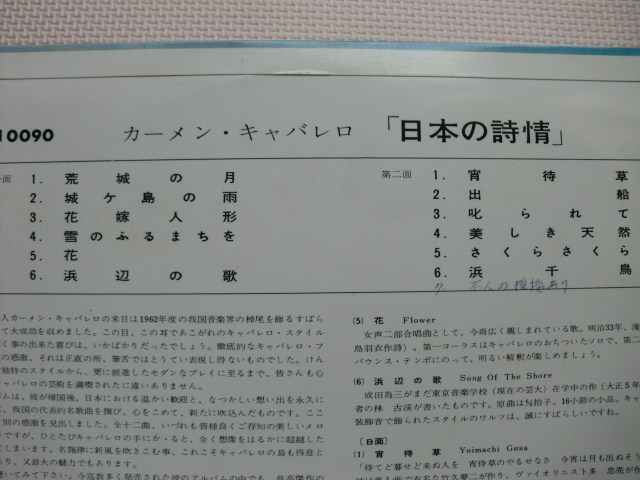 10090 カーメン・キャバレロ 「日本の詩情」
面 1. 荒城の月
2. 城ケ島の雨
3. 花嫁人形
4. 雪のふるまちを
5. 花
6. 浜辺の歌
第二面 1. 宵待草
2. 出船
3. 叱られて
4. 美しき天然
5. さくらさくら
6. 浜千鳥
7.
人カーメン・キャバレロの来日は1962年度の我国音楽界の棹尾を飾るすばら
て大成功を収めました。この目、この耳であこがれのキャバレロ・スタイル
く事の出来た喜びは、いかばかりだったでしょう。徹底的なキャバレロ・フ
の感激、それは正直の所、筆舌ではとうてい表現し得ないものでした。けん
独特のスタイルから、更に前進したモダンなプレイに至るまで、皆さんも心
ャバレロの芸術を満喫されたに違いありません。
ムは、彼が帰国後、日本における温かい歓迎と、なつかしい想い出を永久に
、我国の代表的名歌曲を撰び、心をこめて、新たに吹込んだものです。ここ
別の感激を見出しました。全十二曲、いづれも皆様良くご存知の美しいメロ
すが、ひとたびキャバレロの手にかゝると、全く想像をはるかに超越した
てしまいます。名旋律に新風を吹きこむ事、これこそキャバレロの最も得意と
り、又最大の魅力でもあります。
(5) 花 Flower
女声二部合唱曲として、今尚広く親しまれている歌。明治33年、滝
島羽衣作詩)。第一コーラスはキャバレロのおちついたソロで、第二
バウンス・テンポにのって、明るい解釈が楽しめましょう。
(6) 浜辺の歌 Song Of The Shore
成田為三がまだ東京音楽学校(現在の芸大)在学中の作(大正5年
者の林 古溪が書いたものです。原曲は⅝拍子。16小節の小品。キャ
装飾音で飾られたスタイルのワルツは、誠にすばらしいですね。
〔B面〕
(1) 宵待草 Yoimachi Gusa
「待てど暮せど来ぬ人を 宵待草のやるせなさ 今宵は月も出ぬそう